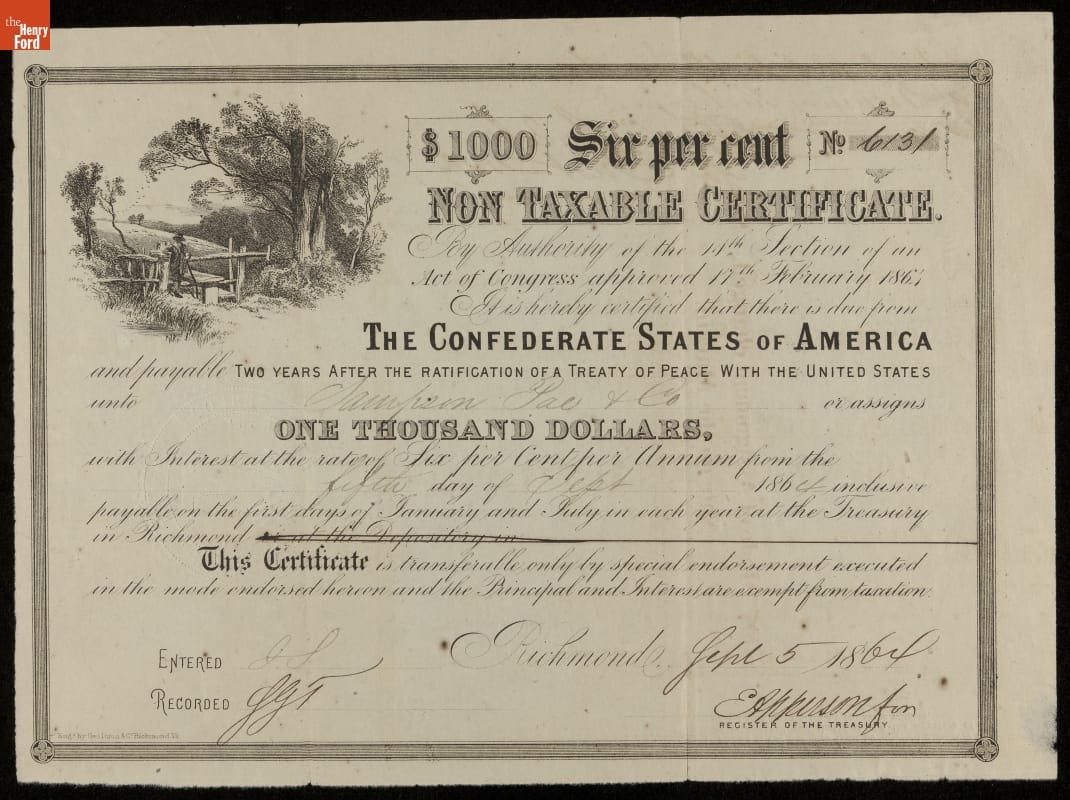 the Henry Ford
$1000 Six per cent No 6131
NON TAXABLE CERTIFICATE.
By Authority of the 14th Section of an
Act of Congress approved 17th February 1864
It is hereby certified that there is due from
THE CONFEDERATE STATES OF AMERICA
and payable TWO YEARS AFTER THE RATIFICATION OF A TREATY OF PEACE WITH THE UNITED STATES
unto Sampson Pae & Co or assigns
ONE THOUSAND DOLLARS,
with Interest at the rate of Six per Cent per Annum from the
fifth day of Sept 1864 inclusive
payable on the first days of January and July in each year at the Treasury
in Richmond or at the Depository in
This Certificate is transferable only by special endorsement executed
in the mode endorsed hereon and the Principal and Interest are exempt from taxation.
ENTERED
Richmond, Sept 5 1864
RECORDED
E Apperson for
REGISTER OF THE TREASURY
Engd by Geo Dunn & Co Richmond Va